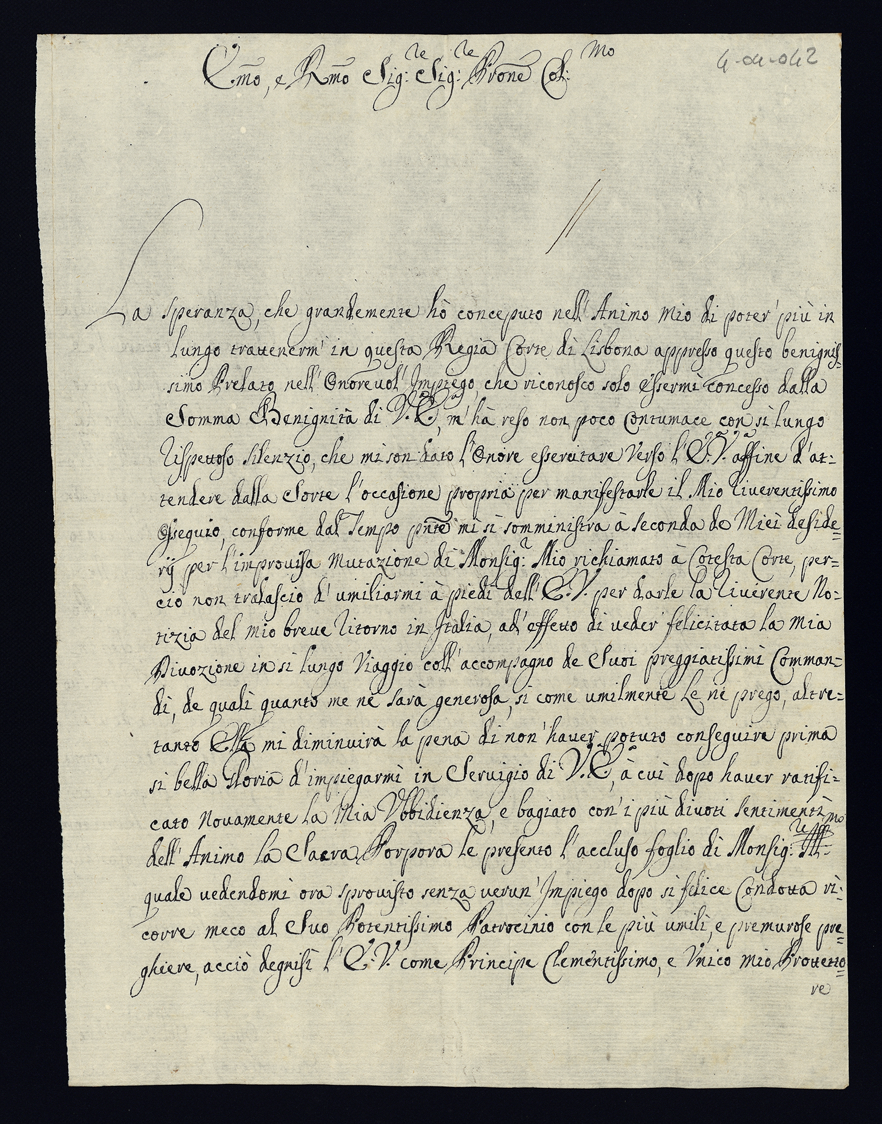 4-04-042
Em̃o, e Rm̃o Sig:re Sig:re Prone Col:mo
La speranza, che grandemente hò conceputo nell'Animo mio di poter' più in
lungo trattenerm' in questa Regia Corte di Lisbona appresso questo benignis-
simo Prelato nell'Onorevol'Impiego, che riconosco solo essermi concesso dalla
Somma Benignità di V.Eza, m'hà reso non poco Contumace con si lungo
rispettoso silenzio, che mi son dato l'Onore essercitare verso l'E.V. affine d'at:
tendere dalla Sorte l'occasione propria per manifestarle il Mio riverentissimo
Ossequio, conforme dal Tempo pñte mi si somministra à Seconda de Miei deside=
rij per l'improvisa mutazione di Monsig:r Mio richiamato à Cotesta Corte, per=
ciò non tralascio d'umiliarmi à piedi dall'E.V. per darle la riverente No:
tizia del mio breve ritorno in Italia, ad'effetto di veder' felicitata la mia
Divozione in si lungo Viaggio coll'accompagno de Suoi preggiatissimi Comman=
di, de quali quanto me ne sarà generosa, si come umilmente Le ne prego, altre=
tanto Ella mi diminuirà la pena di non'haver potuto conseguire prima
si bella Gloria d'impiegarmi in Servigio di V.Eza, à cui dopo haver ratifi:
cato novamente la Mia Vbbidienza, e bagiato con'i più divoti sentimenti
dell'Animo la Sacra Porpora le presento l'accluso foglio di Monsig:re Ill:mo
quale vedendomi ora sprovisto senza verun'Impiego dopo si felice Condotta ri:
corre meco al Suo Potentissimo Patrocinio con le più umili, e premurose pre=
ghiere, acciò degnisi l'E.V. come Principe Clementissimo, e Vnico mio Protetto=
re